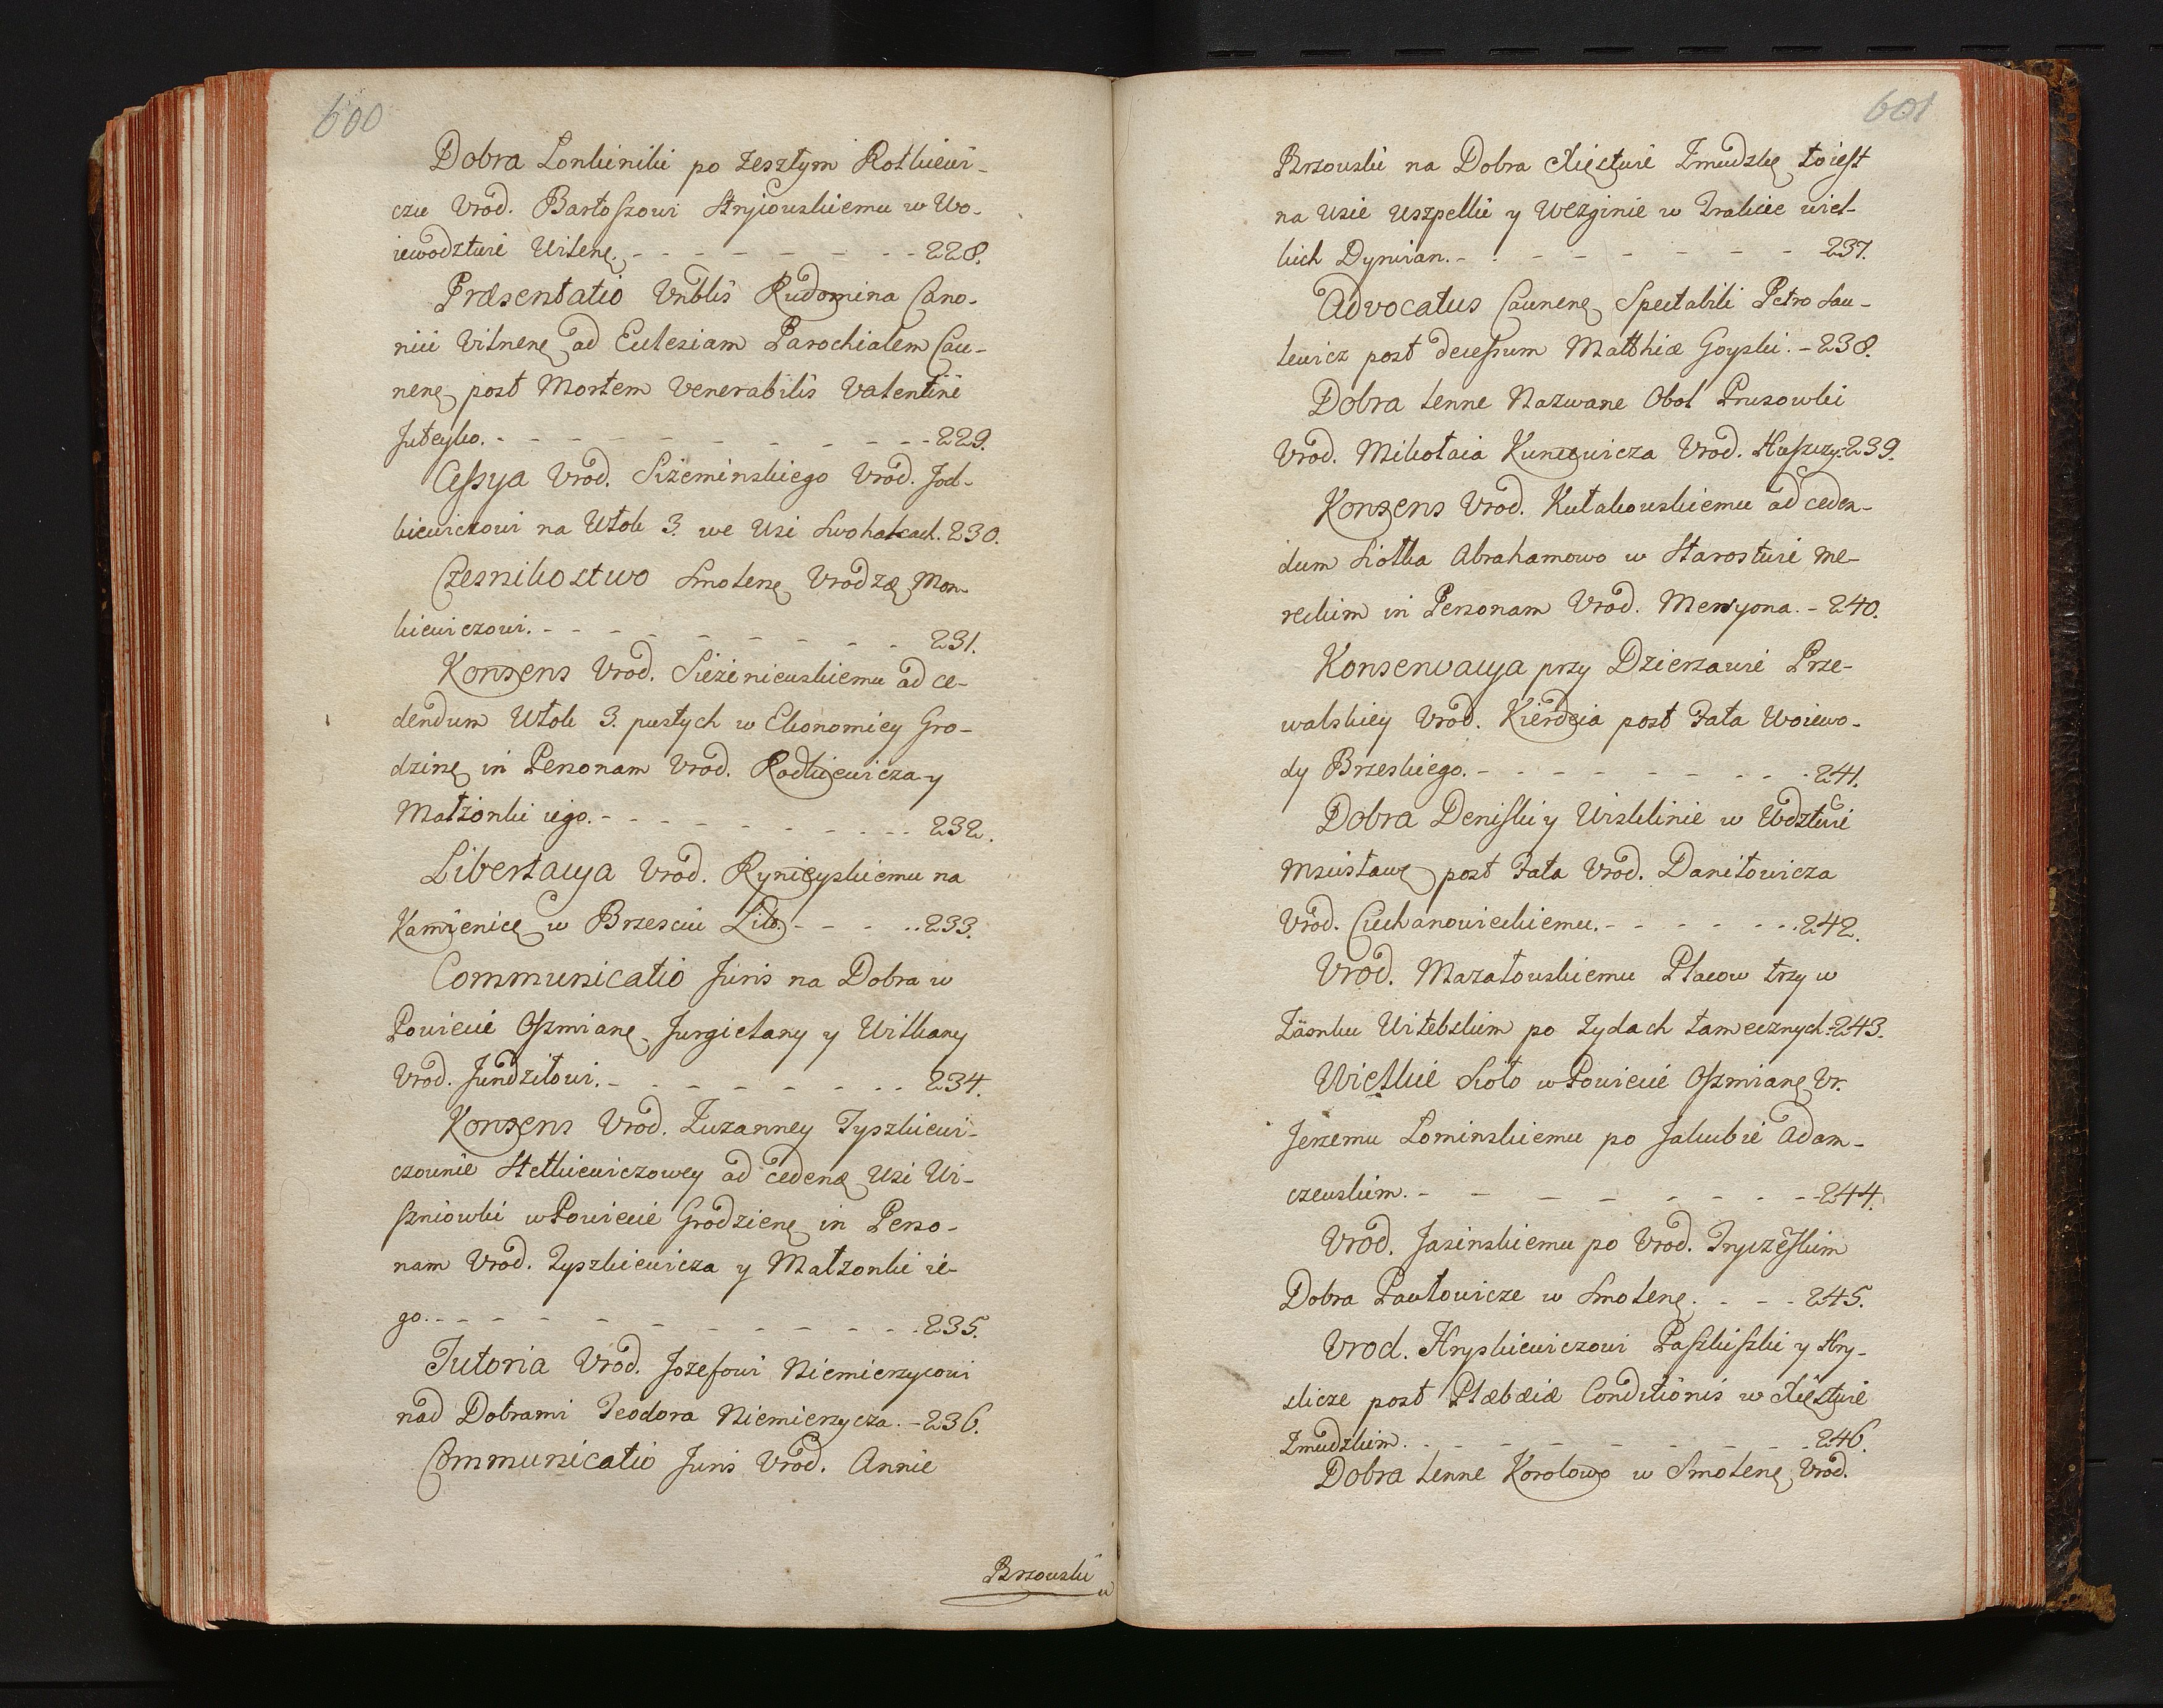 600
Dobra Lonkiniki po zeszłym Rotkiewi-
czu Urod. Bartoszowi Stryiowskiemu w Wo-
iewodztwie Wilenę. - - - - - - - - 228.
Præsentatio Vnblis Rudomina Cano-
nici Vilnenę ad Ecclesiam Parochialem Cau-
nenę post Mortem Venerabilis Valentini
Juteyko. - - - - - - - - - - 229.
Cessya Urod. Siżeminskiego Urod. Jod-
kiewiczowi na Włok 3. we Wsi Swohakach. 230.
Czesnikostwo Smolenę Urodzę Mon-
kiewiczowi. - - - - - - - - 231.
Konsens Urod. Siezieniewskiemu ad ce-
dendum Włok 3. pustych w Ekonomiey Gro-
dzinę in Personam Urod. Rodkiewicza y
Małżonki iego. - - - - - - - - 232.
Libertacya Urod. Rynieyskiemu na
Kamienicę w Brzesciu Lit. - - - - 233.
Communicatio Juris na Dobra w
Powiecie Oszmianę Jurgielany y Witkany
Urod. Jundziłowi. - - - - - - - 234.
Konsens Urod. Zuzanney Tyszkiewi-
czownie Stetkiewiczowey ad cedenę Wsi Wi-
szniowki w Powiecie Grodzienę in Perso-
nam Urod. Tyszkiewicza y Małzonki ie-
go. - - - - - - - - - - 235.
Tutoria Urod. Jozefowi Niemierzycowi
nad Dobrami Teodora Niemierzycza. - 236.
Communicatio Juris Urod. Annie
Brzowski
601
Brzowski na Dobra Xięstwie Zmudzkę toiest
na Wsie Uszpelki y Wezginie w Trakcie wiel-
kich Dyrwian. - - - - - - - - 237.
Advocatus Caunenę Spectabili Petro Sau-
lewicz post decessum Matthiæ Goyski. - 238.
Dobra Lenne Nazwane Obol Prusowki
Urod. Mikołaia Kuncewicza Urod. Hłuszczy. 239.
Konsens Urod. Kułakowskiemu ad ceden-
dum Siołka Abrahamowo w Starostwie Me-
reckim in Personam Urod. Mensyona. - 240.
Konserwacya przy Dzierzawie Prze-
walskiey Urod. Kierdeia post Fata Woiewo-
dy Brzeskiego. - - - - - - - - 241.
Dobra Deniski y Wisklinie w Wdztwie
Mscisławę post Fata Urod. Daniłowicza
Urod. Ciechanowieckiemu. - - - - - - 242.
Urod. Mazałowskiemu Placow trzy w
Zamku Witebskim po Zydach tamecznych. 243.
Wietkie Sioło w Powiecie Oszmianę Ur.
Jerzemu Lominskiemu po Jakubie Adam-
czewskim. - - - - - - - - 244.
Urod. Jasinskiemu po Urod. Tryzeskim
Dobra Pawłowicze w Smolenę. - - - 245.
Urod. Hryskiewiczowi Paszkiszki y Hry-
skicze post Plæbeiæ Conditionis w Xięstwie
Zmudzkim. - - - - - - - - 246.
Dobra Lenne Korolowo w Smolenę Urod.